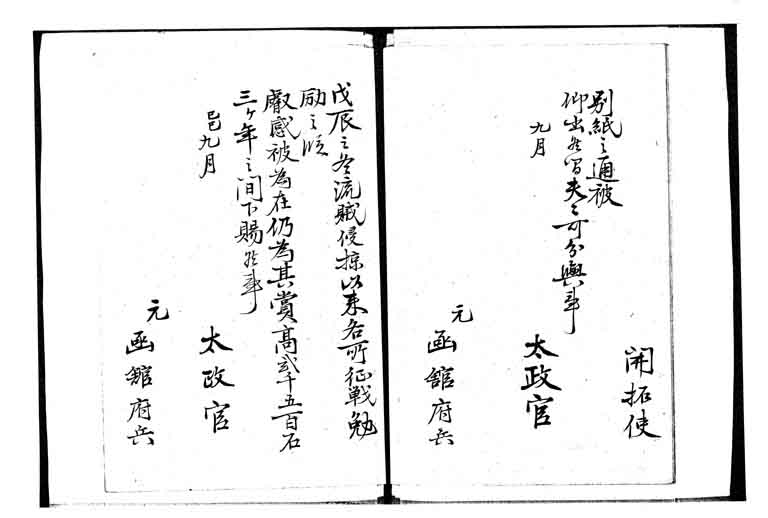 別紙之通被
仰出候間夫々可分與事
九月
太政官
開拓使
元
函館府兵
戊辰之冬流賊侵掠以来各所征戦勉
励之段
叡感被為在仍為其賞高弐千五百石
三ケ年之間下賜候事
己巳九月
太政官
元
函館府兵